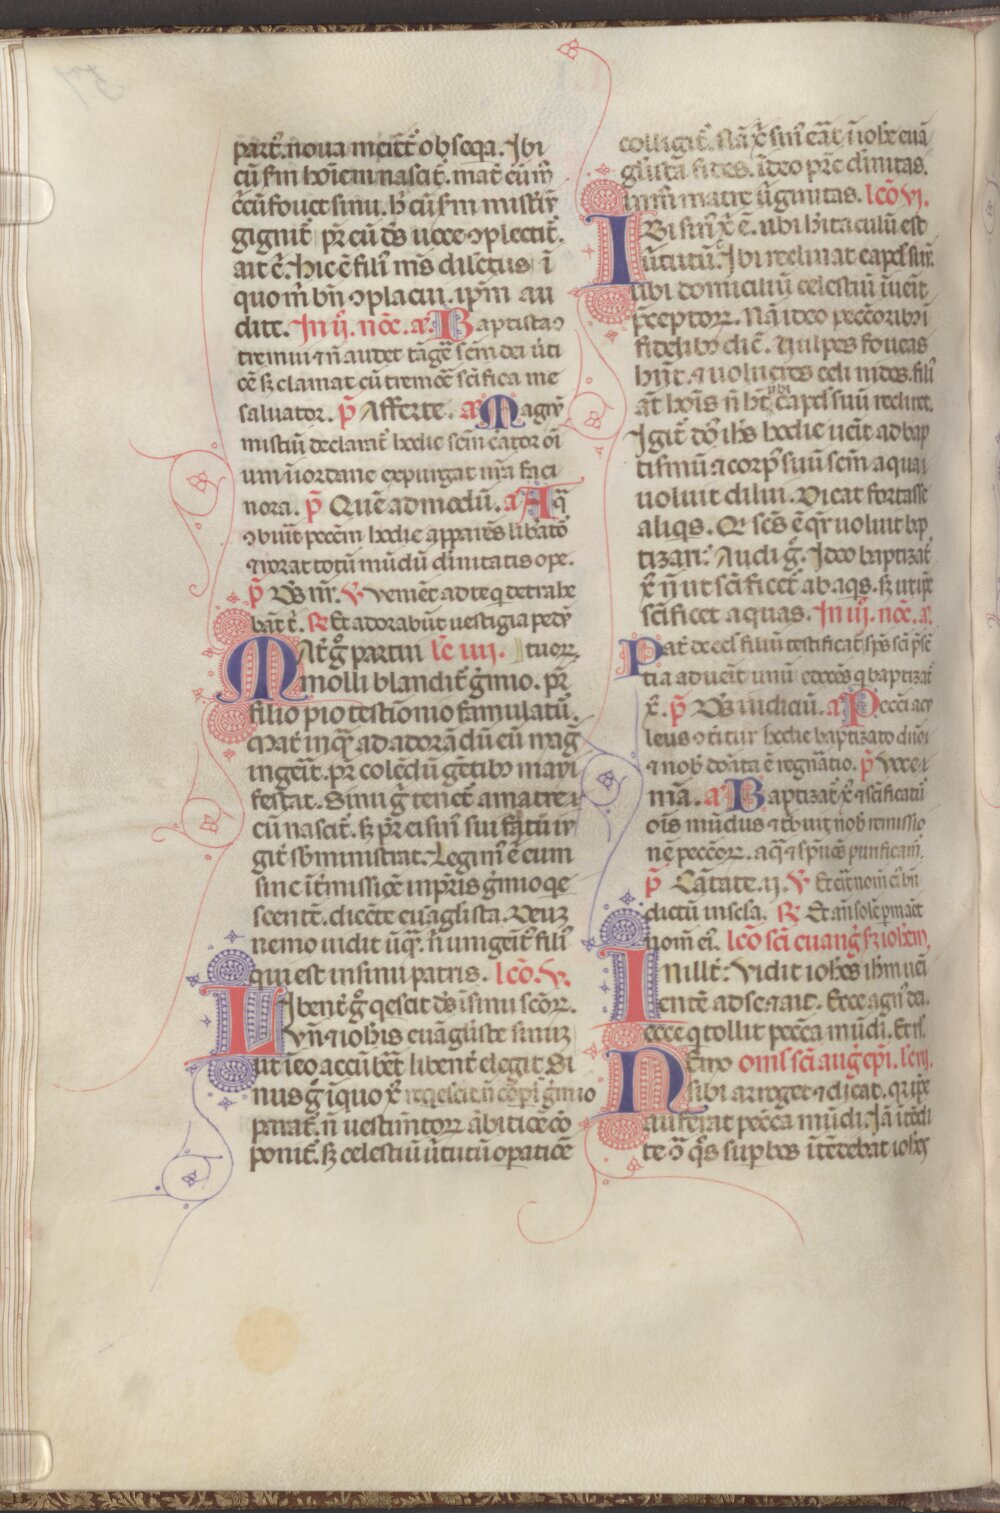 part̾. noua meitēt̾ obseqa. Ibi
cū s̄m hoīem nascit̾. mat̾ eū m̄
c̄cū fouet sinu. h̓ cū s̄m misti̾r̄
gignit̾ pr̄ eū ds̄ uoce ↄplectit̾.
ait .n̄. Hic ē fili᷒ m̄s dilectus ī
quo m̄ bn̄ ↄplacui. ip̄m au
dite. In ij. noc̄. a͛. Baptista ↄ
tremuit ⁊ n̄ audet tāg̾e sc̄m dei u̾ti
cē sꝫ clamat cū tremoē sc̄ifica me
saluator. p̄ Afferte. a͛ Magnū
misteriū declarat̾ hodie
um ī iordane expurgat nr̄a faci
nora. p̄ Quēadmodū. a͛ Aq̄
ↄbuīt̾ peccm̄ hodie apparēs libatoꝛ
⁊ rorat totū mūdū diuinitatis ope.
p̄ Ds̄ nr̄. ℣ Venient ad te q̄ detrahe
bāt t̾. ℟ Et adorabūt uestigia pedū
Mat̾ g̊ partū lc̄ iiij. tuoꝝ
molli blandit̾ g̾mio. pr̄
filio pio testiōnio famulatū.
Mat̾ inq̄ ad adorādū eū mag̾
ingeīt̾. pr̄ colēdū gētibꝫ mani
festat. Sinu g̊ tenet̾ a matre ⁊
cū nascit̾. sꝫ pr̄ ei sinū sui
git̾ sbministrat. Legim᷒ ē eum
sine īt̾missiōe in pr̄is g̾mio qe
scentē. dicēte euāglista. Deuꝫ
nemo uidit ūq̄. n̄ unigeit᷒ fili᷒
qui est in sinu patris. lcō. v.
Libent̾ g̊ q̾escit ds̄ ī sinu scōꝝ.
Vn̄ ⁊ iohīs euāgliste sinuꝫ
ut ī eo accūbet̾ libent̾ elegit. Si
nus g̊ ī quo x̄ reqescit n̄ corpi g̾mio
parat̾. n̄ uestimtoꝝ ābitiōe cō
ponit̾. sꝫ celestiū u̾tutū opatiōe
colligit̾. Nā x̄ sin᷒ eāt̾ ī noƀ euā
glista fides. ī deo pr̄e diuinitas.
ī matre u̾ginitas. lcō vj.
Ibi sin᷒ x̄ ē. ubi hītaculū est
u̾tutū. Ibi reclinat caput suū.
ubi domiciliū celestiū īuēit
p̄ceptoꝝ. Nā ideo pecc̄oribꝫ ī
fidelibꝫ dic̄. Vulpes foueas
hn̄t. ⁊ uolucres celi nidos. fili᷒
āt hoīs n̄ ht̾ ubi caput suū recliet.
Igit̾ dn̄s ih̄s hodie uēit ad bap
tismū ⁊ corp᷒ suū sc̄m aqua
uoluit dilui. Dicat fortasse
aliqs. Qr̾ sc̄s ē q̾r uoluit bap
tizari. Audi g̊. Ideo baptizat̾
x̄ n̄ ut sc̄ificet̾ ab aqs. sꝫ ut ip̄e
sc̄ificet aquas. In iij. noc̄. a͛
Pat̾ de cel᷒ filiū testificat̾ sp̄s sc̄i p̄sē
tia aduēit unū edocēs q̄ baptizat̾
x̄. p̄ Ds̄ iudiciū. a͛ Pecc̄i acu
leus ↄt̾itur hodie baptizato dn̄o
⁊ nob̾ donata ē regn̾atio. p̄ Voce
mea. a͛ Baptizat̾ x̄ ⁊ sc̄ificatu᷒
oīs mūdus ⁊ tribuit nob̾ remissio
nē peccōꝝ. aq̄ ⁊ sp̄u oēs purificam̄.
p̄ Cātate. ij. ℣ Et eīt nom̄ ei᷒ bn̄
dictū in scl̄a. ℟ Et an̄ solē p̄māet
nom̄ ei᷒. lcō sc̄i euang̾ s̄ iohem̄.
In ill̄ t̾: Vidit iohēs ih̄m ueī
entē ad se. ⁊ ait. Ecce agn᷒ dei.
ecce q̄ tollit pecc̄a mūdi. Et r̄l.
Nemo oml᷒ sc̄i aug̾ epī. lc̄ vij.
sibi arroget ⁊ dicat. qr̾ ip̄e
auferat pecc̄a mūdi. Iā ītēdi
te ↄ̄ q̊s supbos ītēdebat iohēs